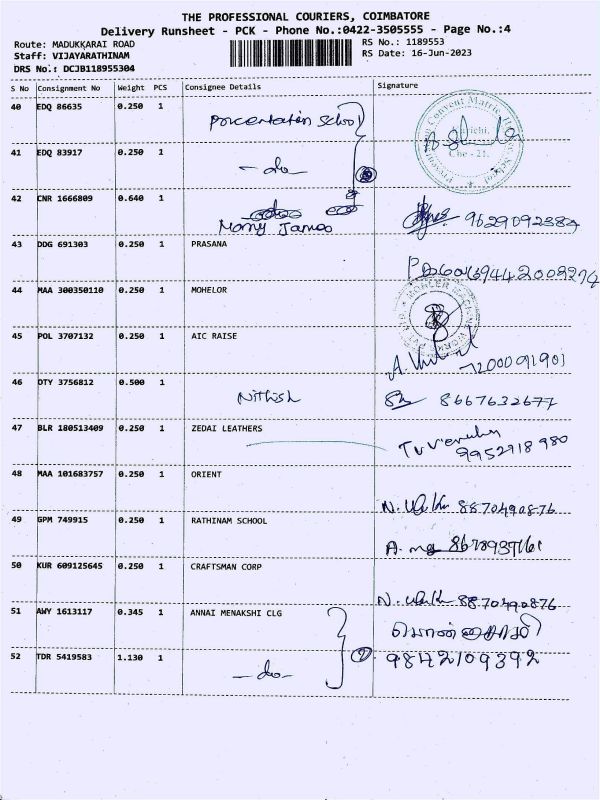 THE PROFESSIONAL COURIERS, COIMBATORE
Delivery Runsheet - PCK - Phone No.:0422-3505555 - Page No.:4
Route: MADUKKARAI ROAD RS No.: 1189553
Staff: VIJAYARATHINAM RS Date: 16-Jun-2023
DRS No.: DCJB118955304
S No Consignment No Weight PCS Consignee Details Signature
40 EDQ 86635 0.250 1 School
41 EDQ 83917 0.250 1 -do-
42 CNR 1666809 0.640 1 James
43 DDG 691303 0.250 1 PRASANA
44 MAA 300350110 0.250 1 MOHELOR
45 POL 3707132 0.250 1 AIC RAISE 7200091901
46 OTY 3756812 0.500 1 Nithish 8667632677
47 BLR 180513409 0.250 1 ZEDAI LEATHERS 9952918980
48 MAA 101683757 0.250 1 ORIENT 8870490876
49 GPM 749915 0.250 1 RATHINAM SCHOOL
50 KUR 609125645 0.250 1 CRAFTSMAN CORP 8870490876
51 AWY 1613117 0.345 1 ANNAI MENAKSHI CLG
52 TDR 5419583 1.130 1 -do- 9842109392